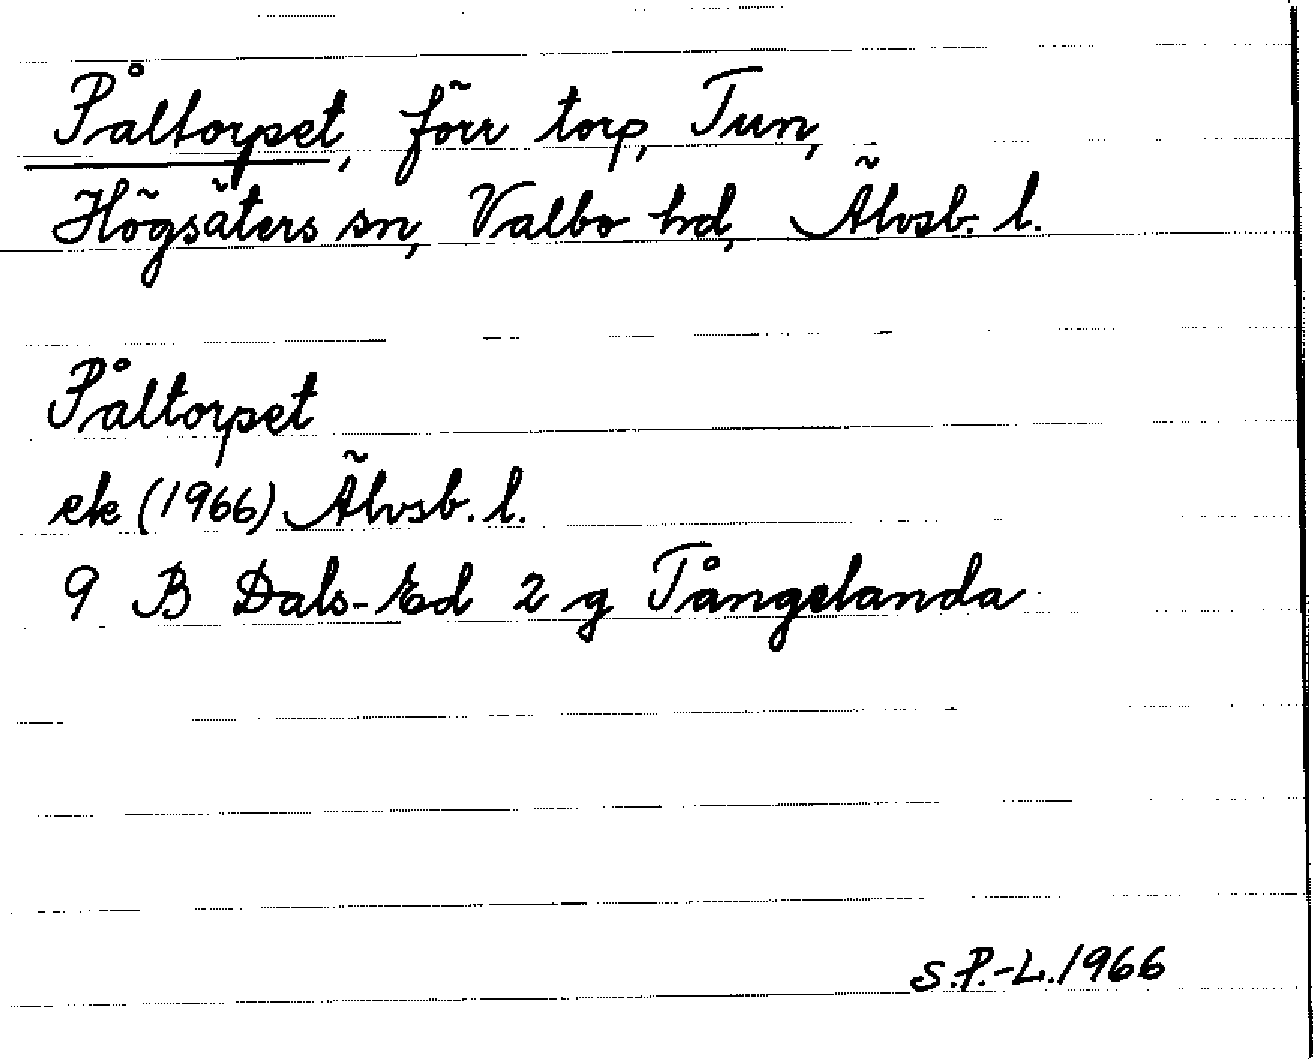 Påltorpet, förr torp, Tun,
Högsäters sn, Valbo hd, Älvsb. l.
Påltorpet
ek (1966) Älvsb. l.
9 B Dals-Ed 2 g Tångelanda
S.P.-L. 1966